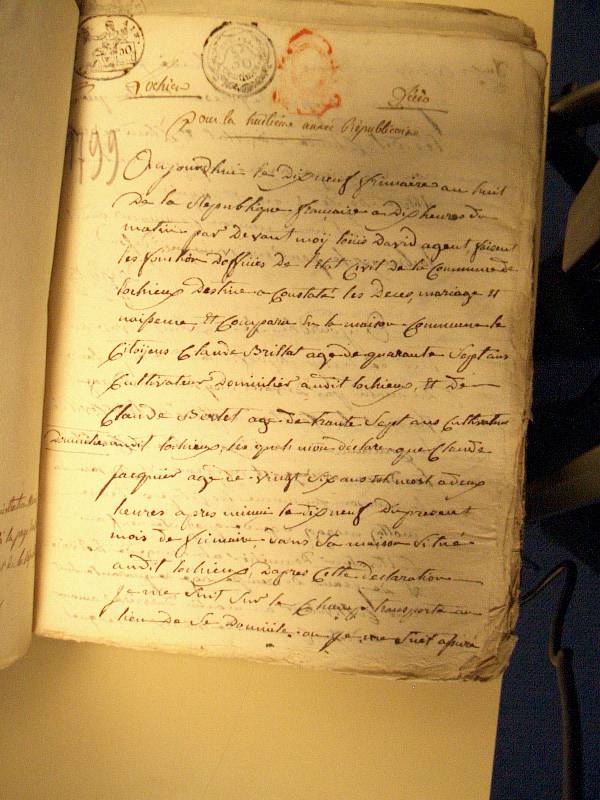 Lochieu Décès
Pour la huitieme année Républicaine
1799
Aujourdhui le dixneuf frimaire an huit
De la Republique francaise a dix heures du
matin par Devant moy louis David agent faisent
les fonction D'officiés de l'Etat Civil de la Commune de
lochieux Destiné a Constater les Deces, mariage et
naissence, Et Comparu En la maison Commune le
Citoyens Claude Brillat age de quarante Sept ans
Cultivateur Domicilier audit lochieux, Et De
Claude age de trante Sept ans Cultivateur
Domicilie audit lochieux, les quels mon declare que Claude
Jacquier age de vingt Six ans Est mort a deux
heures apres minuit le dixneuf Du present
mois de frimaire, dans Sa maison Située
audit lochieux, Dapres Cette declaration
Je me Suit Sur le Champ transporte au
lieu de Sé Domicile ou Je me Suit assuré